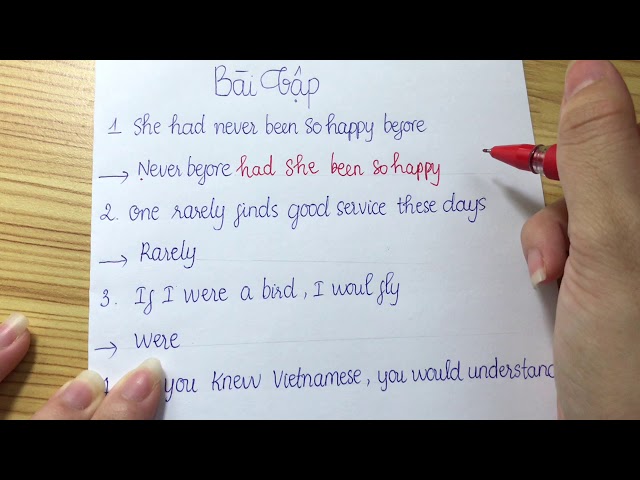 Bài Tập
1 She had never been so happy before
→ Never before had she been so happy
2. One rarely finds good service these days
→ Rarely
3. If I were a bird, I woul fly
→ Were
you knew Vietnamese, you would understand